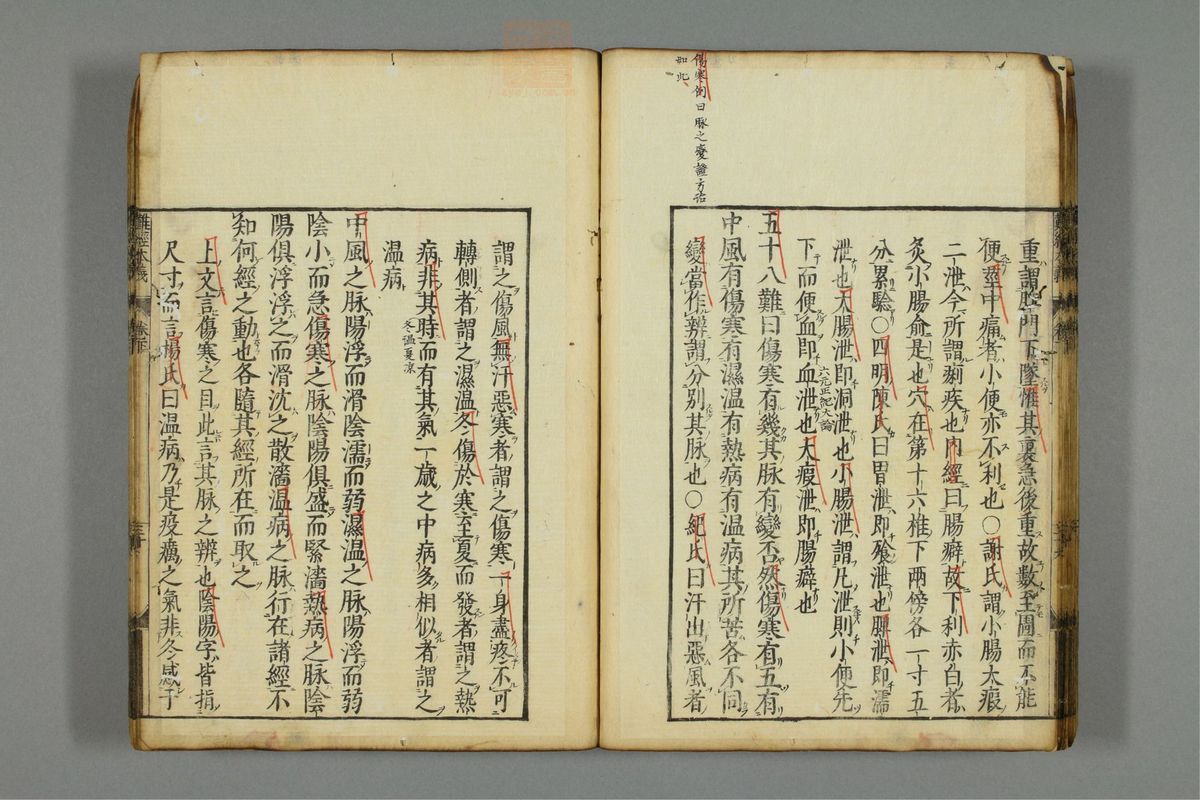 傷寒例曰脉之變證方治
如此
重謂肛門下墜惟其裏急後重故數至圊而不能
便莖中痛者小便亦不利也○謝氏謂小腸大瘕
二泄今所謂痢疾也內經曰腸癖故下利赤白者
灸小腸俞是也穴在第十六椎下兩傍各一寸五
分累驗○四明陳氏曰胃泄即飱泄也脾泄即濡
泄也大腸泄即洞泄也小腸泄謂凡泄則小便先
下而便血即血泄也大瘕泄即腸癖也
六元正紀大論
五十八難曰傷寒有幾其脉有變否然傷寒有五有
中風有傷寒有濕温有熱病有温病其所苦各不同
變當作辨謂分別其脉也○紀氏曰汗出惡風者
謂之傷風無汗惡寒者謂之傷寒一身盡疼不可
轉側者謂之濕温冬傷於寒至夏而發者謂之熱
病非其時而有其氣一歲之中病多相似者謂之
冬温夏凉
温病
中風之脉陽浮而滑陰濡而弱濕温之脉陽浮而弱
陰小而急傷寒之脉陰陽俱盛而緊濇熱病之脉陰
陽俱浮浮之而滑沈之散濇温病之脉行在諸經不
知何經之動也各隨其經所在而取之
上文言傷寒之目此言其脉之辨也陰陽字皆指
尺寸而言楊氏曰温病乃是疫癘之氣非冬感于
難經本義
卷下